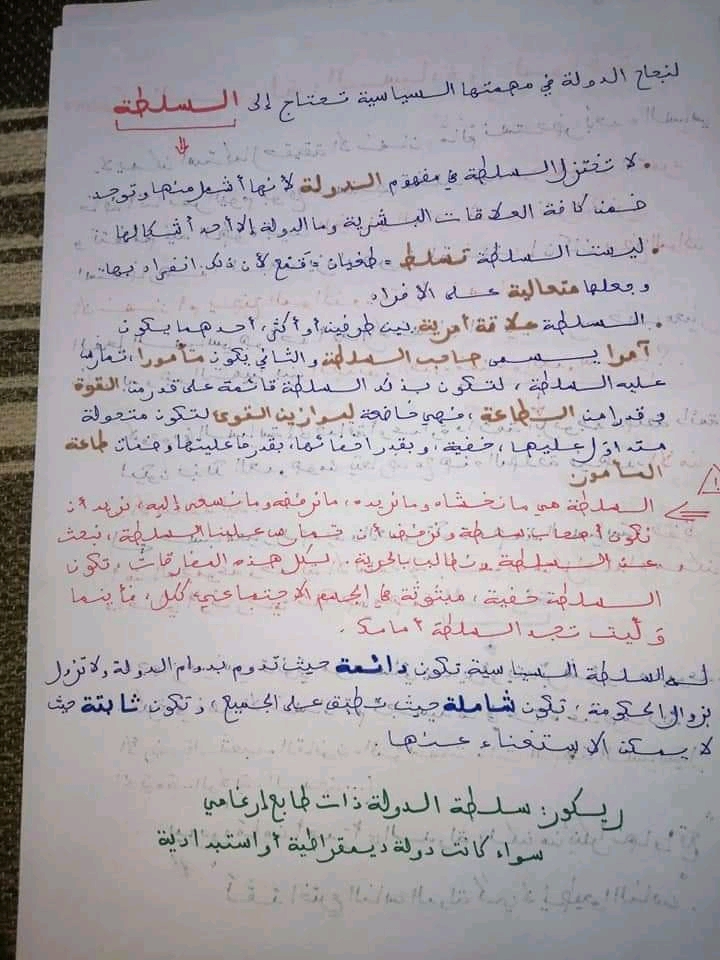 لنجاح الدولة في مهمتها السياسية تحتاج إلى السلطة
• لا تختزل السلطة في مفهوم الدولة لأنها أشمل منها وتوجد
ضمن كافة العلاقات البشرية وما الدولة إلا أحد أشكالها
• ليست السلطة تسلط = طغيان = قمع لأن ذلك انفراد بها
وجعلها متعالية على الأفراد
• السلطة علاقة أمرية بين طرفين أو أكثر، أحدهما يكون
آمرا يسمى صاحب السلطة والثاني يكون مأمورا، تمارس
عليه السلطة، لتكون بذلك السلطة قائمة على قدر من القوة
وقدر من الطاعة، فهي خاضعة لموازين القوى لتكون متحولة
متداول عليها، خفية، وبقدر اخفائها، بقدر فاعليتها وضمان طاعة
المأمور
السلطة هي ما نخشاه وما نريده، ما نرفضه وما نسعى إليه، نريد أن
نكون أصحاب سلطة ونرفض أن تمارس علينا السلطة، نبحث
عن السلطة ونطالب بالحرية. لكل هذه المفارقات، تكون
السلطة خفية، مبثوثة في الجسم الاجتماعي ككل، فأينما
ولّيت تجد السلطة أمامك.
السلطة السياسية تكون دائمة حيث تدوم بدوام الدولة ولا تزول
بزوال الحكومة، تكون شاملة حيث تطبق على الجميع، وتكون ثابتة حيث
لا يمكن الاستغناء عنها
ريكور: سلطة الدولة ذات طابع إرغامي
سواء كانت دولة ديمقراطية أو استبدادية